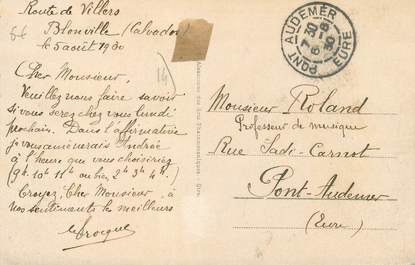 Route de Villers
Blonville (Calvados)
le 5 août 1930
Cher Monsieur,
Veuillez nous faire savoir
si vous serez chez vous lundi
prochain. Dans l'affirmative
je vous amènerais Andrée
à l'heure que vous choisiriez
(9h 10h 11h ou bien 2h 3h 4h).
Croyez, Cher Monsieur, à
nos sentiments les meilleurs
Lecrocque
14
PONT-AUDEMER
7 30
6-8
30
EURE
Monsieur Roland
Professeur de musique
Rue Sadi-Carnot
Pont-Audemer
(Eure)